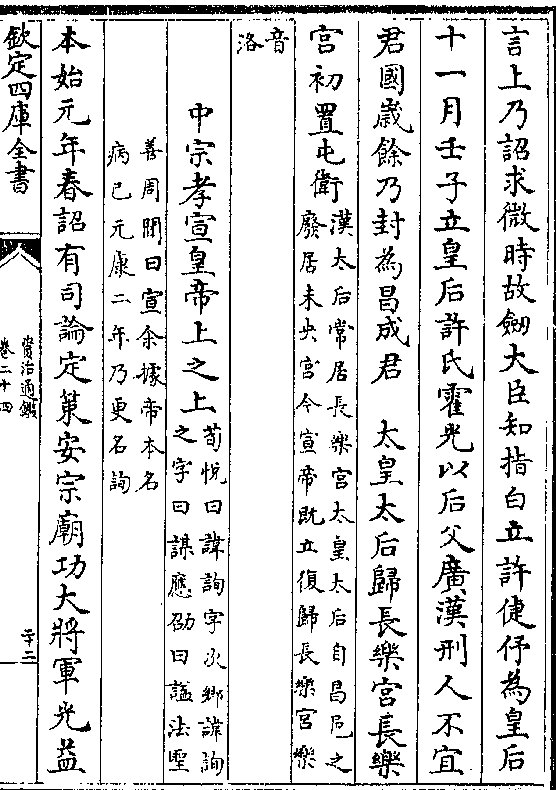 言上乃詔求微時故劒大臣知指白立許倢伃為皇后
十一月壬子立皇后許氏霍光以后父廣漢刑人不宜
君國歳餘乃封為昌成君　太皇太后歸長樂宮長樂
宮初置屯衛漢太后常居長樂宮太皇太后自昌邑之
廢居未央宮今宣帝既立復歸長樂宮樂
音
洛
中宗孝宣皇帝上之上荀悦曰諱詢字次卿諱詢
之字曰謀應劭曰諡法聖
善周聞曰宣余據帝本名
病已元康二年乃更名詢
本始元年春詔有司論定策安宗廟功大將軍光益
欽定四庫全書
資治通鑑
卷二十四